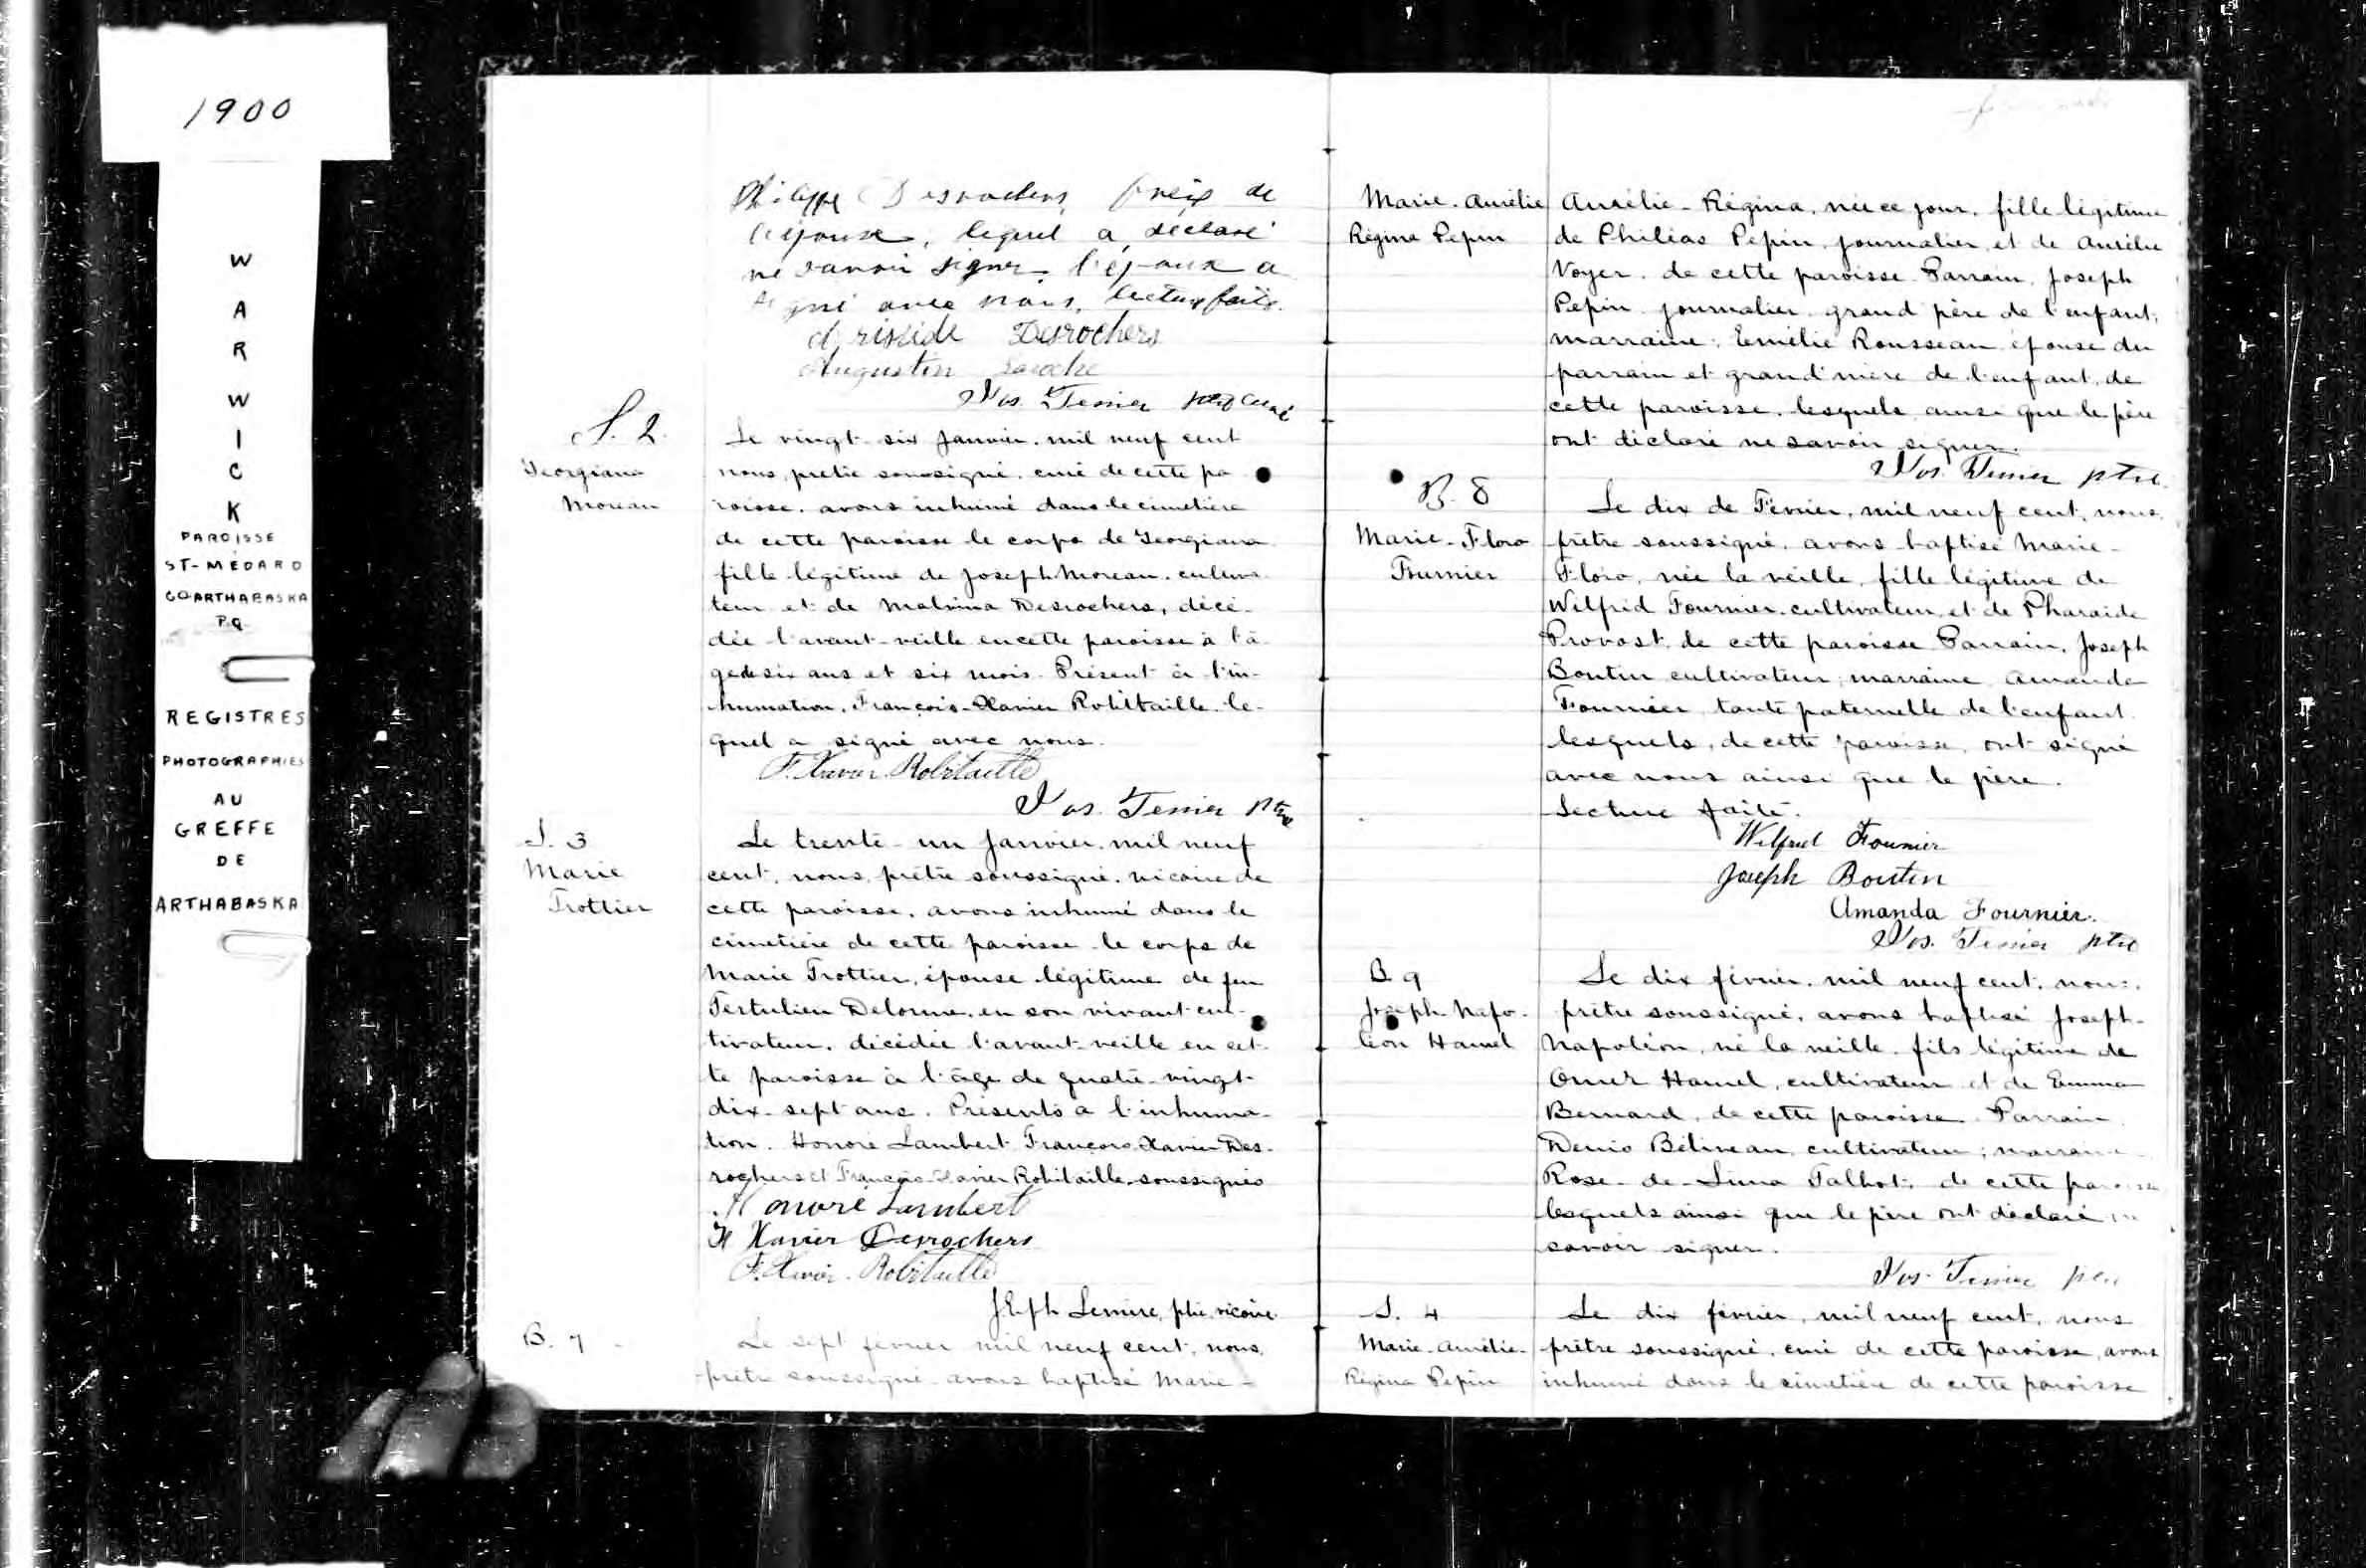 1900
WARWICK
PAROISSE
ST-MÉDARD
CO ARTHABASKA
P.Q.
REGISTRES
PHOTOGRAPHIES
AU
GREFFE
DE
ARTHABASKA
Philippe Desrochers, père de
l'épouse, lequel a déclaré
ne savoir signer. l'époux a
signé avec nous. lecture faite.
Aristide Desrochers
Augustin Laroche
Jos. Tessier ptre curé
S. 2.
Georgiana
Moreau
Le vingt-six Janvier, mil neuf cent
nous, prêtre soussigné, curé de cette pa
roisse, avons inhumé dans le cimetière
de cette paroisse le corps de Georgiana
fille légitime de Joseph Moreau, cultiva-
teur et de Malvina Desrochers, décé-
dée l'avant-veille en cette paroisse à l'â-
ge de six ans et six mois. Présent à l'in-
humation, François-Xavier Robitaille, le-
quel a signé avec nous.
F. Xavier Robitaille
Jos. Tessier ptre
S. 3
Marie
Trottier
Le trente-un Janvier, mil neuf
cent, nous, prêtre soussigné, vicaire de
cette paroisse, avons inhumé dans le
cimetière de cette paroisse le corps de
Marie Trottier, épouse légitime de feu
Tertulien Delorme, en son vivant cul-
tivateur, décédée l'avant-veille en cet-
te paroisse à l'âge de quatre-vingt-
dix-sept ans. Présents à l'inhuma-
tion. Honoré Lambert François Xavier Des-
rochers et François-Xavier Robitaille soussignés
Honoré Lambert
F Xavier Desrochers
F. Xavier Robitaille
J. E. ph Lemire, ptre, vicaire
B. 7
Le sept février mil neuf cent, nous,
prêtre soussigné avons baptisé Marie-
Marie-Aurélie
Régina Pepin
Aurélie-Régina, née ce jour, fille légitime
de Philias Pepin, journalier, et de Aurélie
Voyer, de cette paroisse. Parrain, Joseph
Pepin journalier grand père de l'enfant;
marraine; Emélie Rousseau épouse du
parrain et grand'mère de l'enfant, de
cette paroisse, lesquels ainsi que le père
ont déclaré ne savoir signer.
Jos. Tessier ptre
B. 8
Marie-Flora
Fournier
Le dix de Février, mil neuf cent, nous,
prêtre soussigné, avons baptisé Marie-
Flora, née la veille, fille légitime de
Wilfrid Fournier, cultivateur, et de Pharaïde
Provost, de cette paroisse. Parrain, Joseph
Boutin cultivateur; marraine Amanda
Fournier tante paternelle de l'enfant
lesquels, de cette paroisse, ont signé
avec nous ainsi que le père.
Lecture faite.
Wilfrid Fournier
Joseph Boutin
Amanda Fournier.
Jos. Tessier ptre
B 9
Joseph-Napo-
léon Hamel
Le dix février, mil neuf cent, nous,
prêtre soussigné, avons baptisé Joseph-
Napoléon, né la veille, fils légitime de
Omer Hamel, cultivateur et de Emma
Bernard, de cette paroisse. Parrain
Denis Béliveau, cultivateur; marraine
Rose-de-Lima Talbot, de cette paroisse
lesquels ainsi que le père ont déclaré ne
savoir signer.
Jos. Tessier ptre
S. 4
Marie-Aurélie-
Régina Pepin
Le dix février, mil neuf cent, nous
prêtre soussigné, curé de cette paroisse, avons
inhumé dans le cimetière de cette paroisse